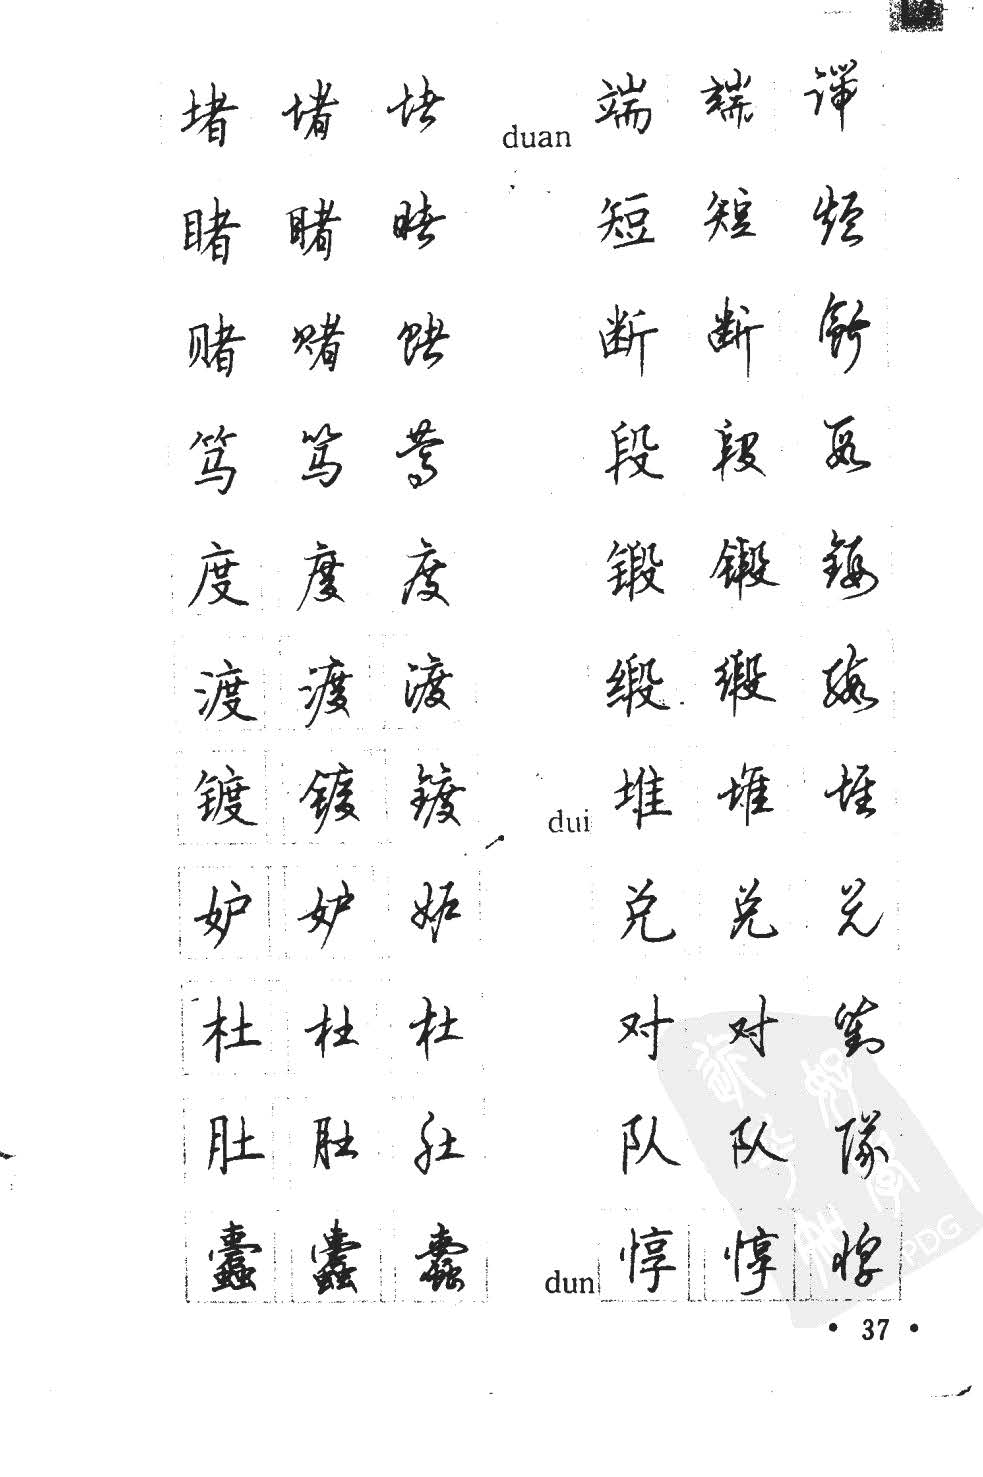 堵 堵 堵
睹 睹 睹
赌 赌 赌
笃 笃 笃
度 度 度
渡 渡 渡
镀 镀 镀
妒 妒 妒
杜 杜 杜
肚 肚 肚
蠹 蠹 蠹
duan 端 端 端
短 短 短
断 断 断
段 段 段
锻 锻 锻
缎 缎 缎
dui 堆 堆 堆
兑 兑 兑
对 对 對
队 队 隊
dun 惇 惇 惇
• 37 •
PDG